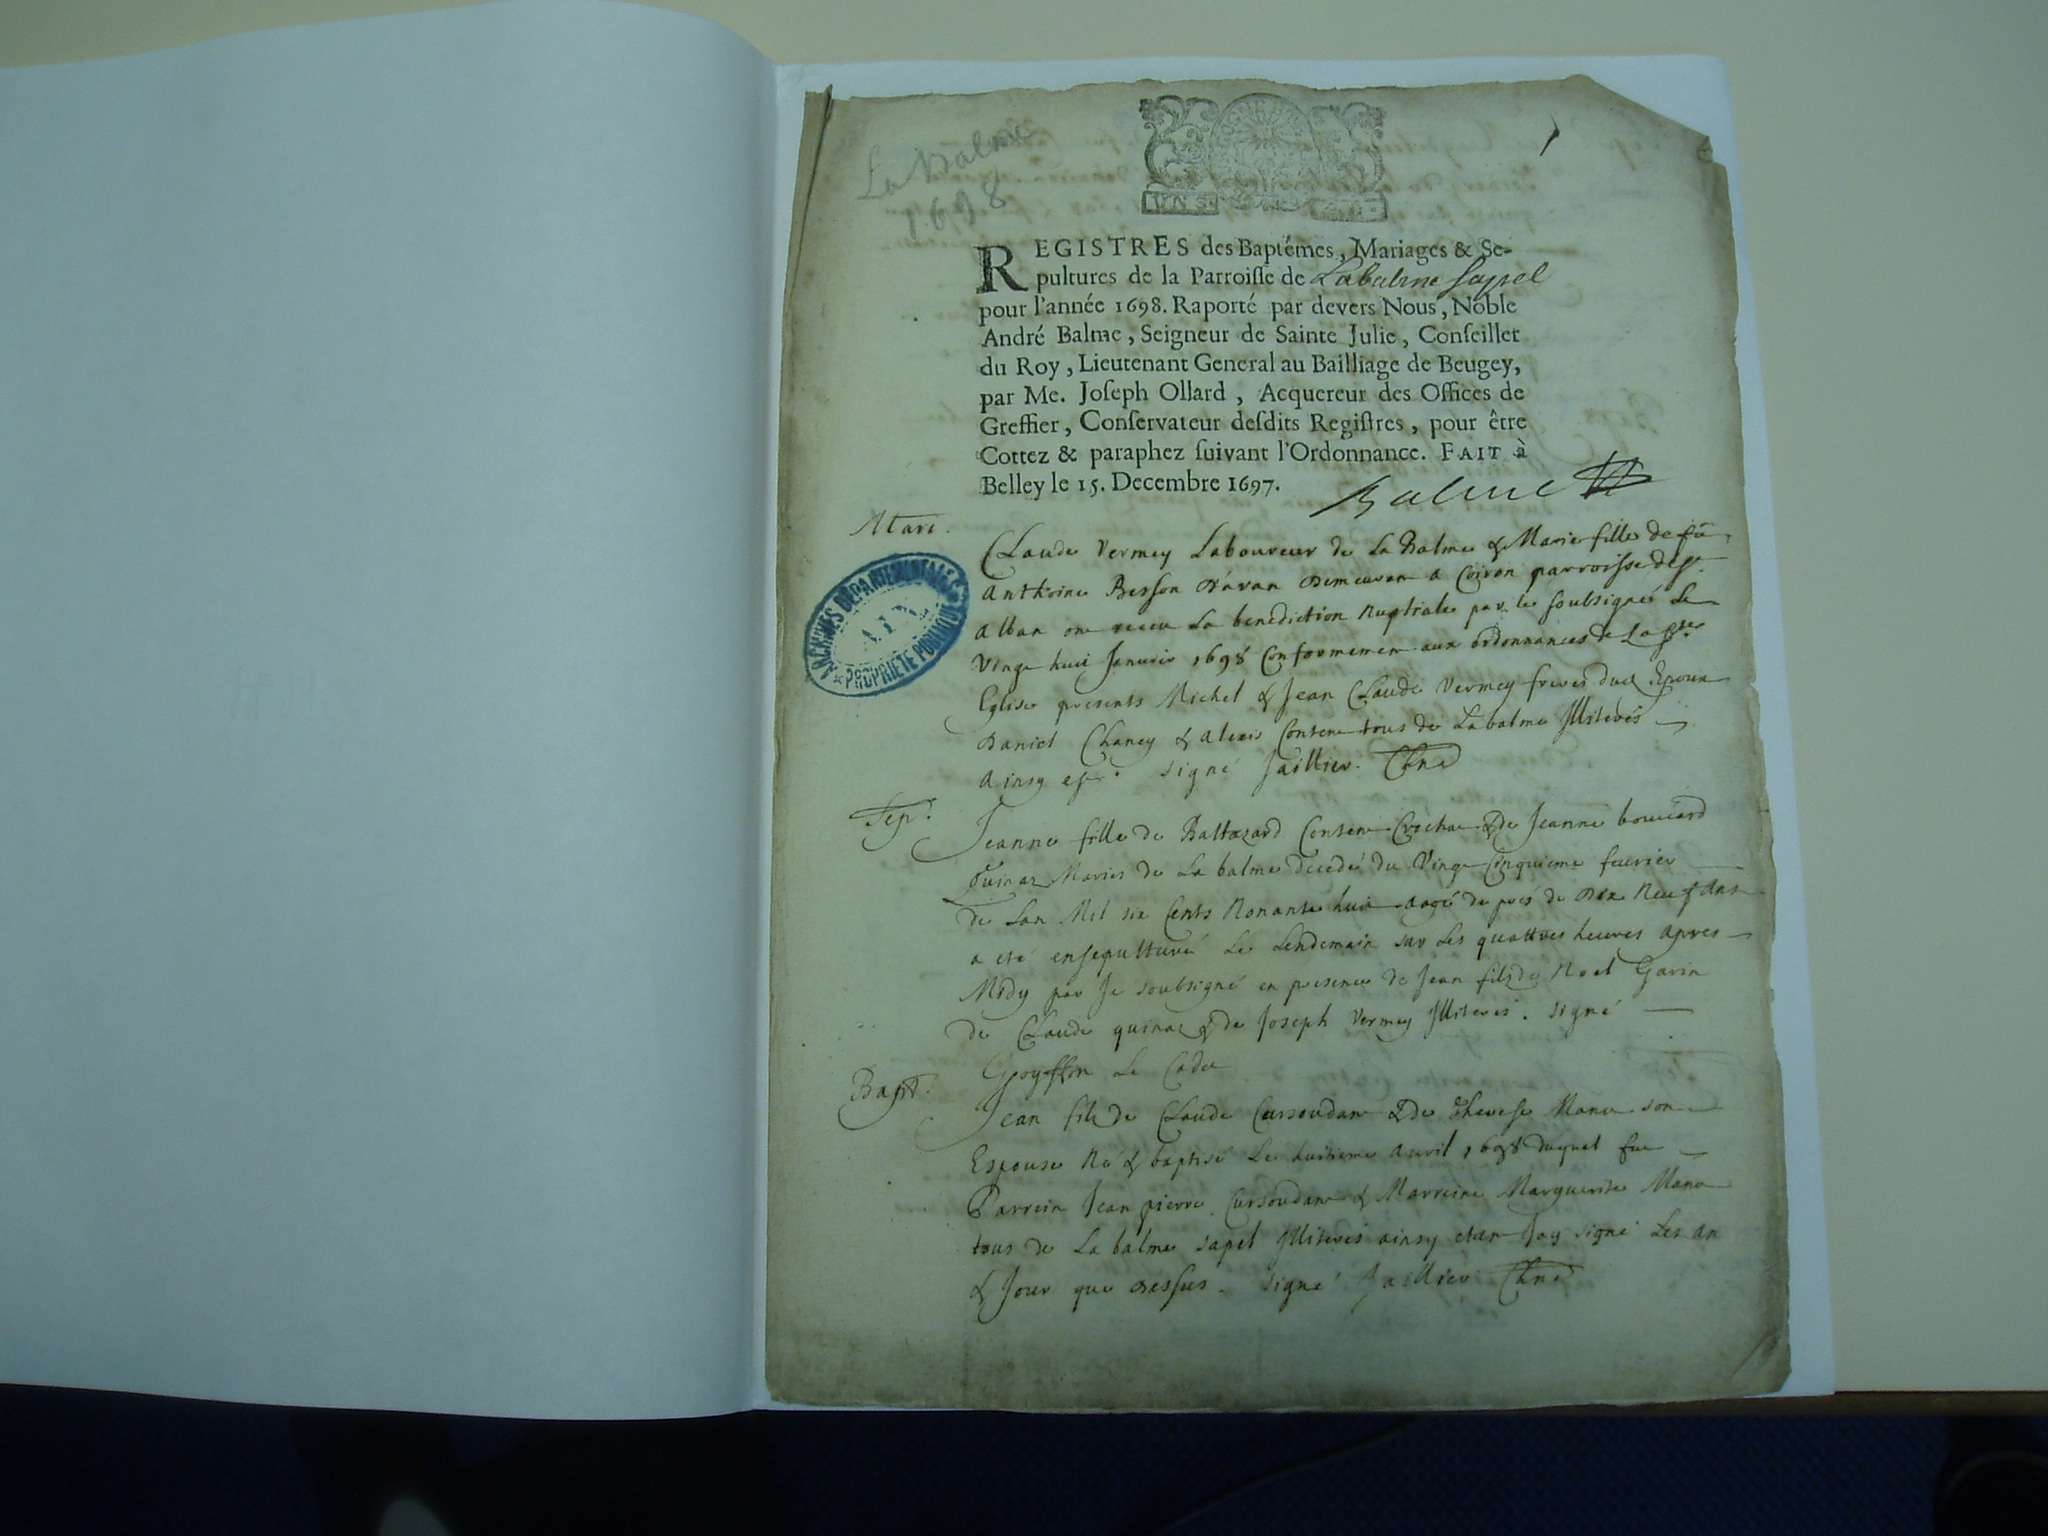 La Balme
1698
1
REGISTRES des Baptêmes, Mariages & Se-
pultures de la Parroisse de Labalme Sappel
pour l'année 1698. Raporté par devers Nous, Noble
André Balme, Seigneur de Sainte Julie, Conseiller
du Roy, Lieutenant General au Bailliage de Beugey,
par Me. Joseph Ollard, Acquereur des Offices de
Greffier, Conservateur desdits Registres, pour être
Cottez & paraphez suivant l'Ordonnance. FAIT à
Belley le 15. Decembre 1697.
Balme
Mari.
ARCHIVES DEPARTEMENTALES
AIN
PROPRIÉTÉ PUBLIQUE
Claude Vermey Laboureur de La Balme & Marie fille de fû
Anthoine Besson demeurant a Coiron parroisse de St.
Alban ont receu La benediction Nuptiale par le soubsigné Le
Vingt huit Janvier 1698 Conformement aux ordonnances de La Ste
Eglise presents Michel & Jean Claude Vermey freres dud Epoux
Daniel Chaney & Alexis Conten tous de La balme Illiterés
Ainsy est. signé Jaillier
Sep.
Jeanne fille de Baltazard Conten & de Jeanne bouvard
Mariés de La balme decedé du Vingt Cinquieme feuvrier
de Lan Mil six Cents Nonante huit aagé de prés de Dix Neuf Ans
a eté ensepulturé Le Lendemain sur Les quattres heures apres
Midy par Je soubsigné en presence de Jean fils de Noel Gavin
de Claude quinat & de Joseph Vermey Illiterés. signé
Goyffon Le Cadet
Bapt.
Jean fils de Claude Cursoudan & de Therese Manu son
Espouse Né & baptisé Le huitieme Avril 1698 duquel fut
Parrein Jean pierre Cursoudan & Marreine Marguerite Manu
tous de La balme sapel Illiterés ainsy etant Jay signé Les an
& Jour que dessus. signé Jaillier